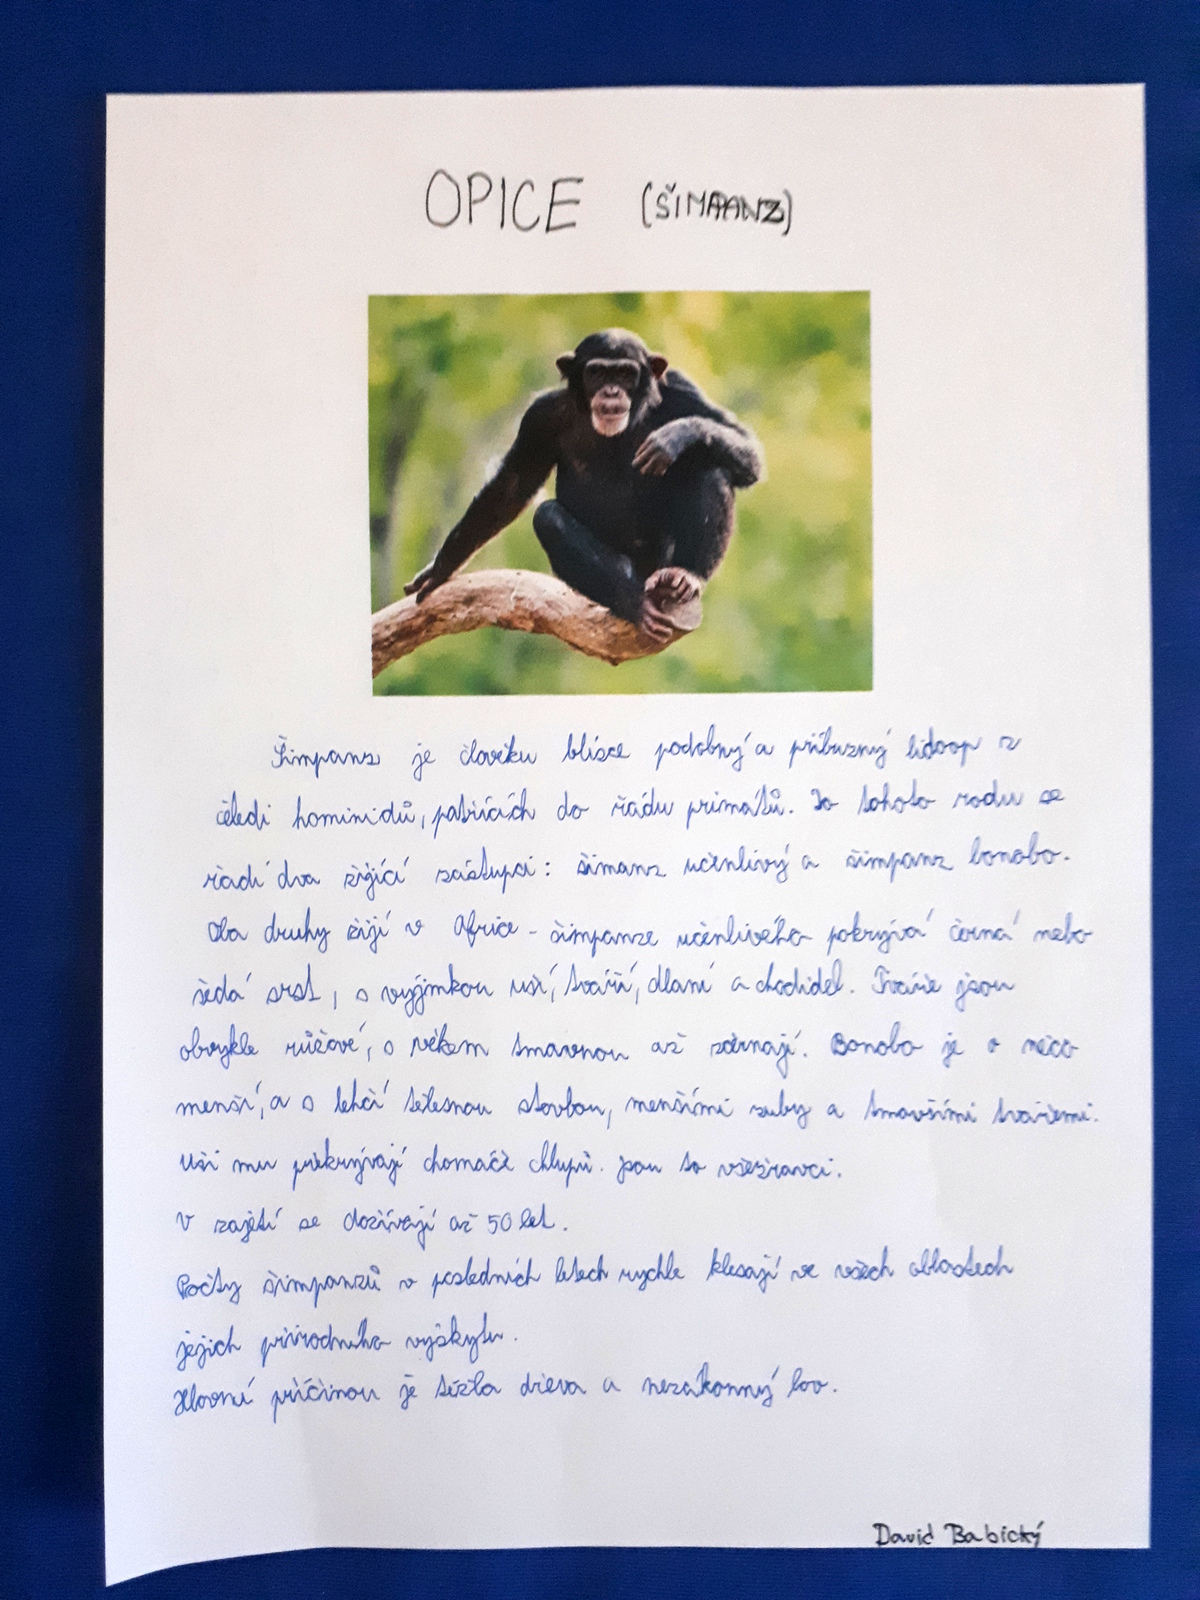 OPICE (ŠIMPANZ)
Šimpanz je člověku blízce podobný a příbuzný lidoop z
čeledi hominidů, patřících do řádu primátů. Do tohoto rodu se
řadí dva žijící zástupci: šimanz učenlivý a šimpanz bonobo.
Oba druhy žijí v Africe - šimpanze učenlivého pokrývá černá nebo
šedá srst, s vyjímkou uší, tváří, dlaní a chodidel. Tváře jsou
obvykle růžové, s věkem tmavnou až zčernají. Bonobo je o něco
menší, a s lehčí tělesnou stavbou, menšími zuby a tmavšími tvářemi.
Uši mu překrývají chomáče chlupů. Jsou to všežravci.
V zajetí se dožívají až 50 let.
Počty šimpanzů v posledních letech rychle klesají ve všech oblastech
jejich přírodního výskytu.
Hlavní příčinou je těžba dřeva a nezákonný lov.
David Babický